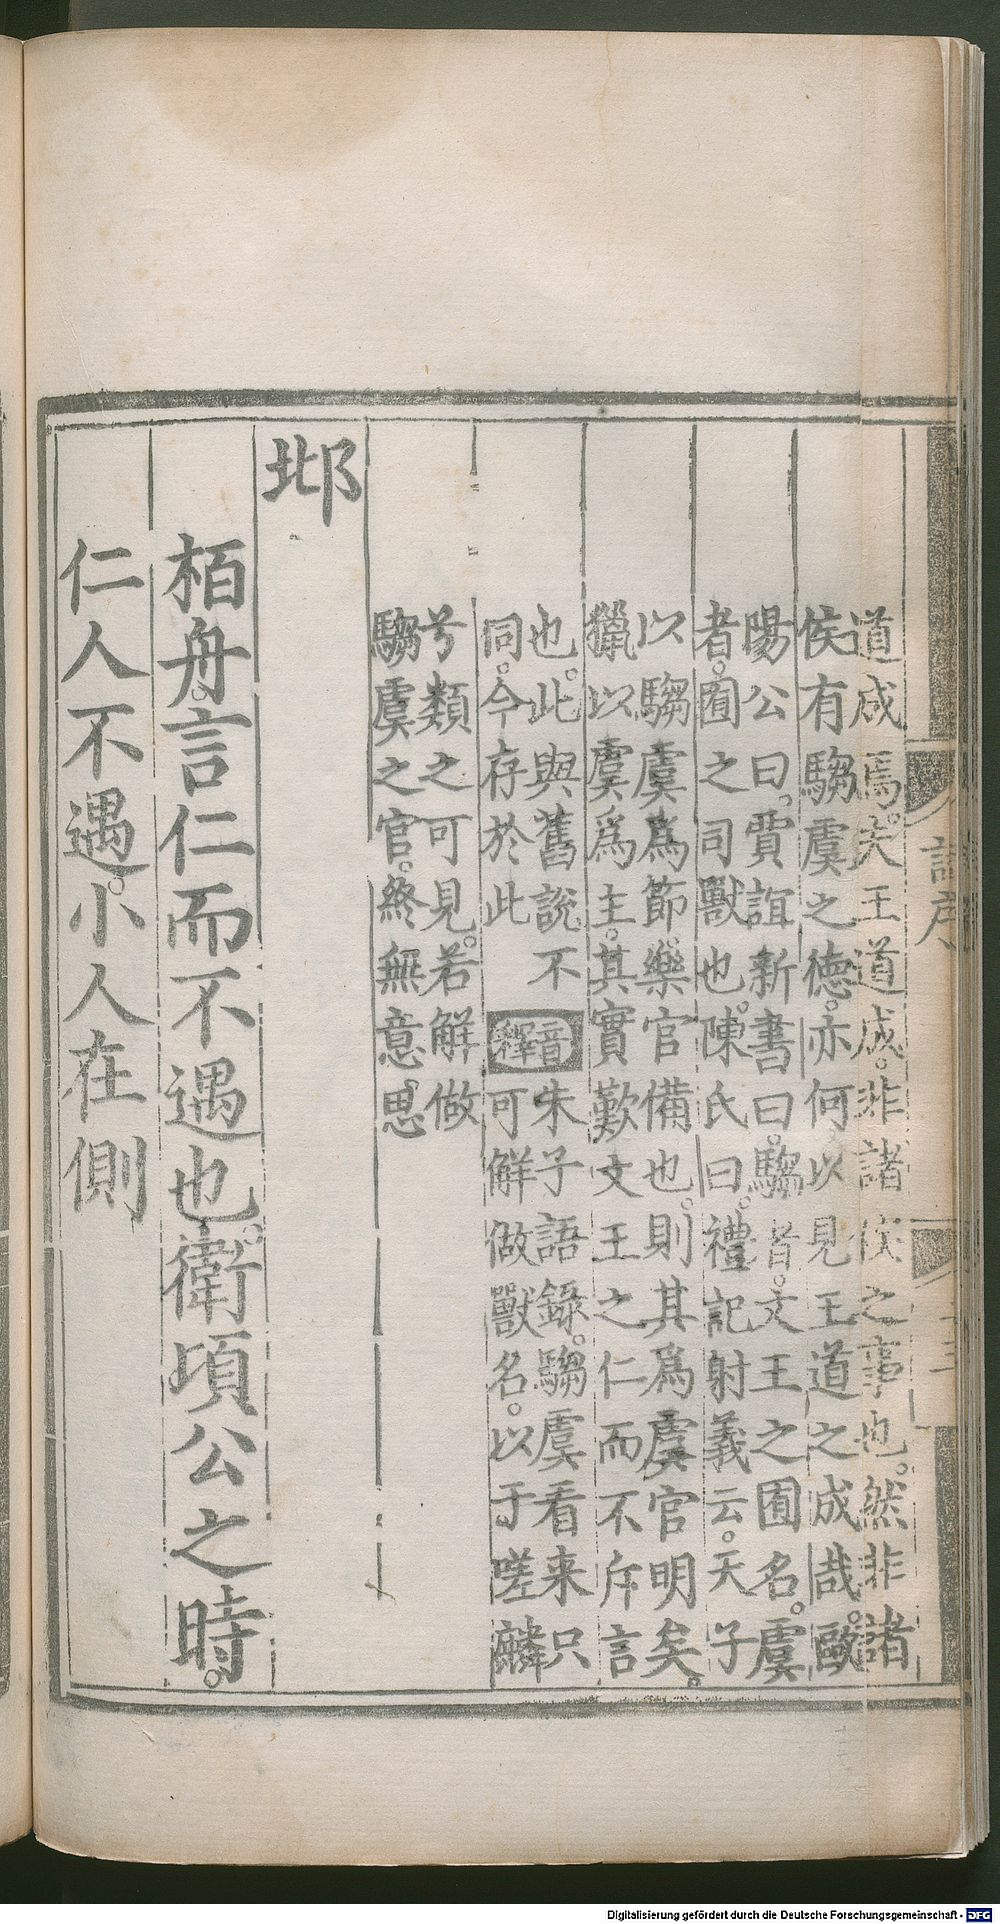 道成焉。夫王道成。非諸侯之事也。然非諸
侯有騶虞之德。亦何以見王道之成哉。歐
陽公曰。賈誼新書曰。騶者。文王之囿名。虞
者。囿之司獸也。陳氏曰。禮記射義云。天子
以騶虞爲節。樂官備也。則其爲虞官明矣。
獵以虞爲主。其實歎文王之仁而不斥言
也。此與舊說不
同。今存於此
音釋
朱子語錄。騶虞看来只
可解做獸名。以于嗟麟
兮類之可見。若解做
騶虞之官。終無意思
邶
栢舟。言仁而不遇也。衛頃公之時。
仁人不遇。小人在側
詩序
Digitalisierung gefördert durch die Deutsche Forschungsgemeinschaft - DFG